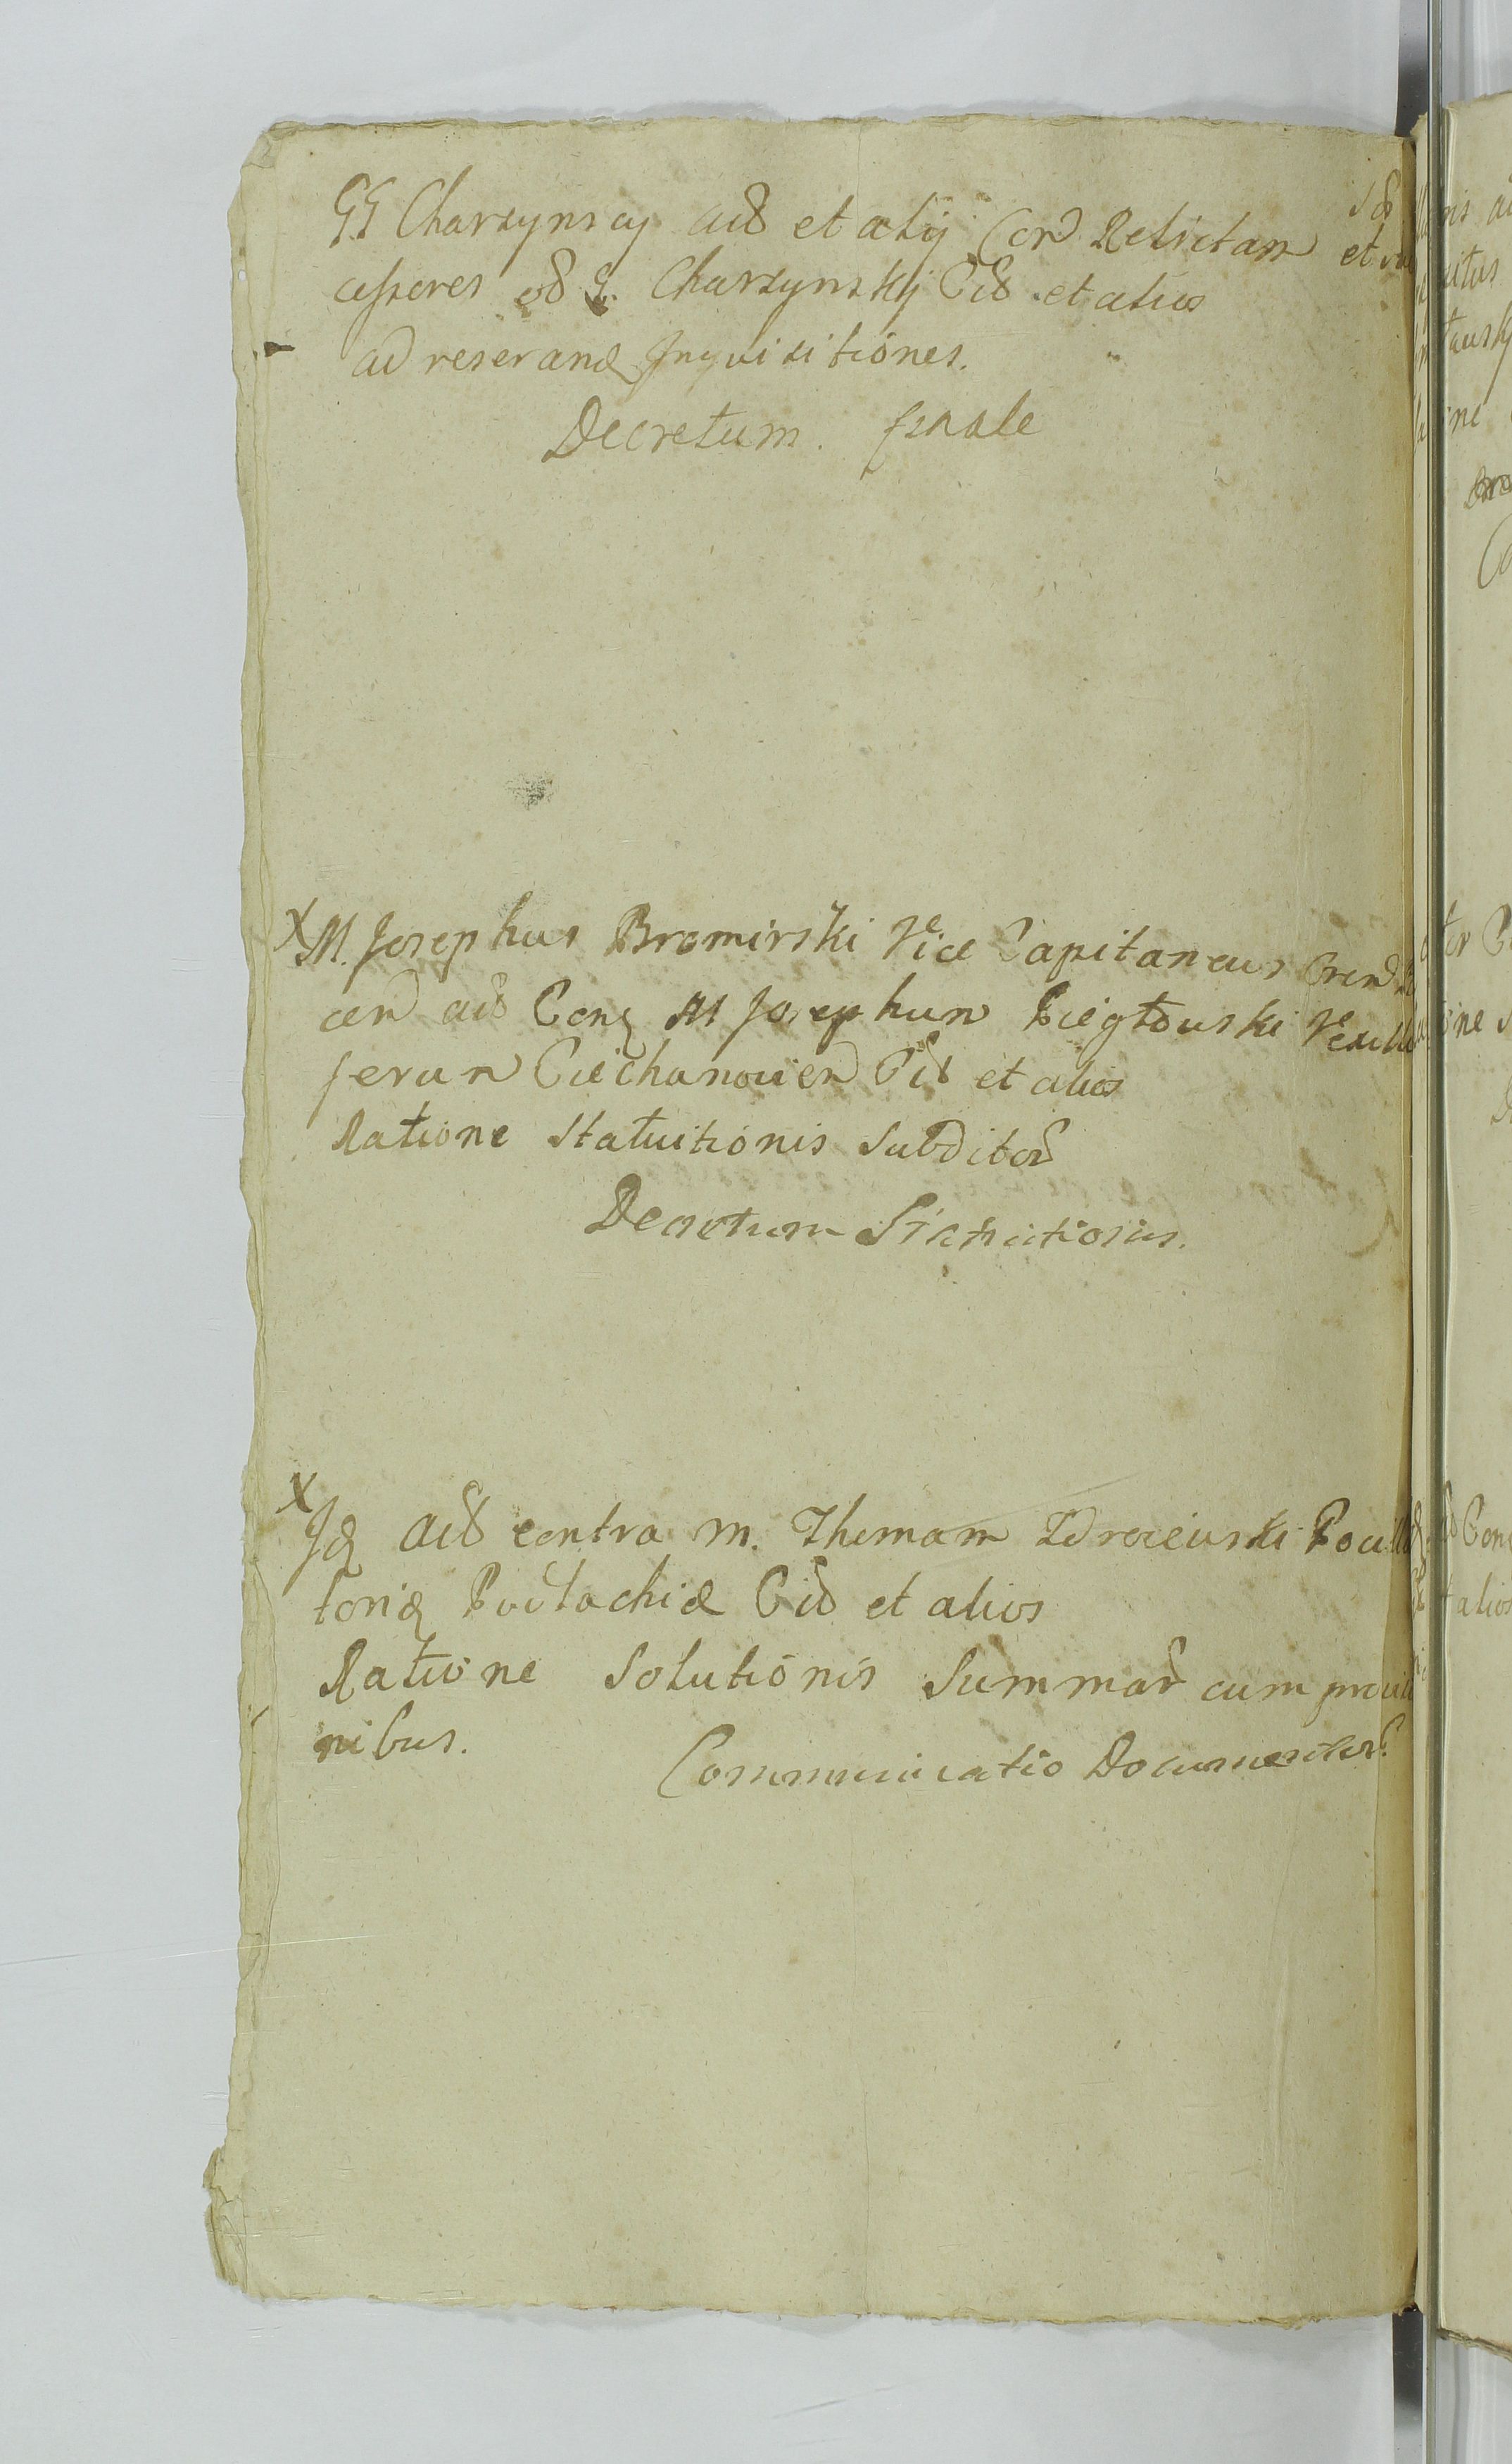 GG Charzynscy act et alij Con Relictam et suc
cessores od G. Charzynskj Cit et alios
ad reserand Inquisitiones.
Decretum finale
X M. Josephus Bromirski Vice Capitaneus
cen act Con M Josephum Piegłowski Vexilli
ferum Ciechanovien Cit et alios
Ratione Statuitionis Subditor
Decretum Statuitionis.
X Id act contra M. Thomam Zdroiewski Pocilla
torid Podlachiæ Cit et alios
Ratione Solutionis Summar cum provisio
nibus.
Communicatio Documentor